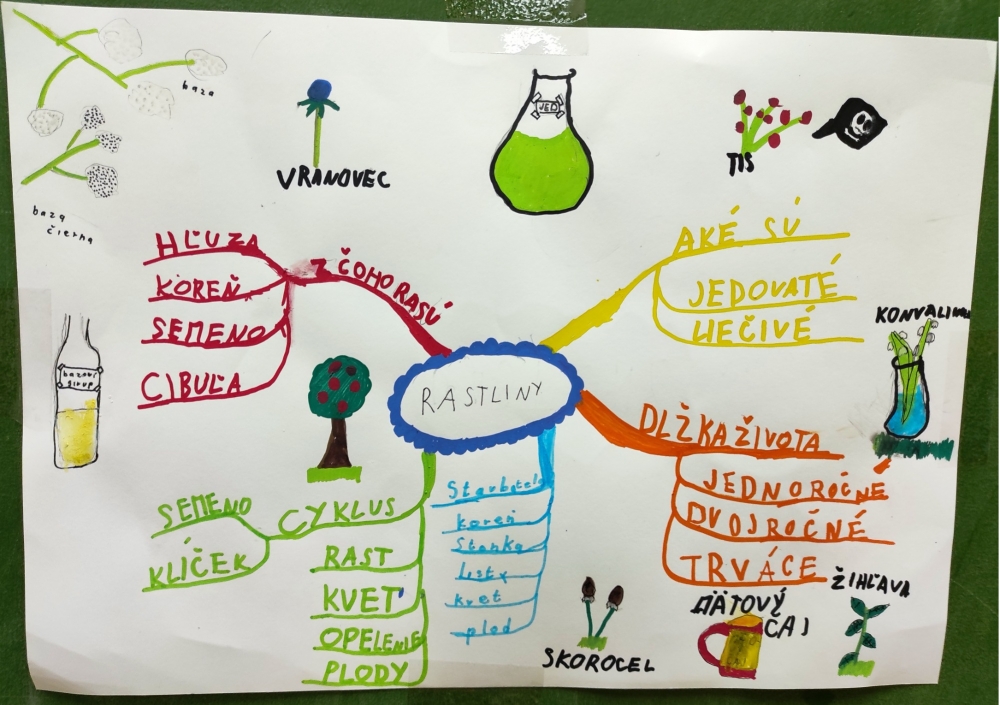 baza
VRANOVEC
JED
TIS
baza
čierna
HĽUZA
Z ČOHO RASÚ
KOREŇ
SEMENO
CIBUĽA
AKÉ SÚ
JEDOVATÉ
LIEČIVÉ
KONVALINKA
bazový
sirup
RASTLINY
DLŽKA ŽIVOTA
JEDNOROČNÉ
DVOJROČNÉ
TRVÁCE
SEMENO
CYKLUS
KLÍČEK
RAST
KVET
OPELENIE
PLODY
koreň
Stonka
listy
kvet
plod
SKOROCEL
MÄTOVÝ
ČAJ
ŽIHĽAVA